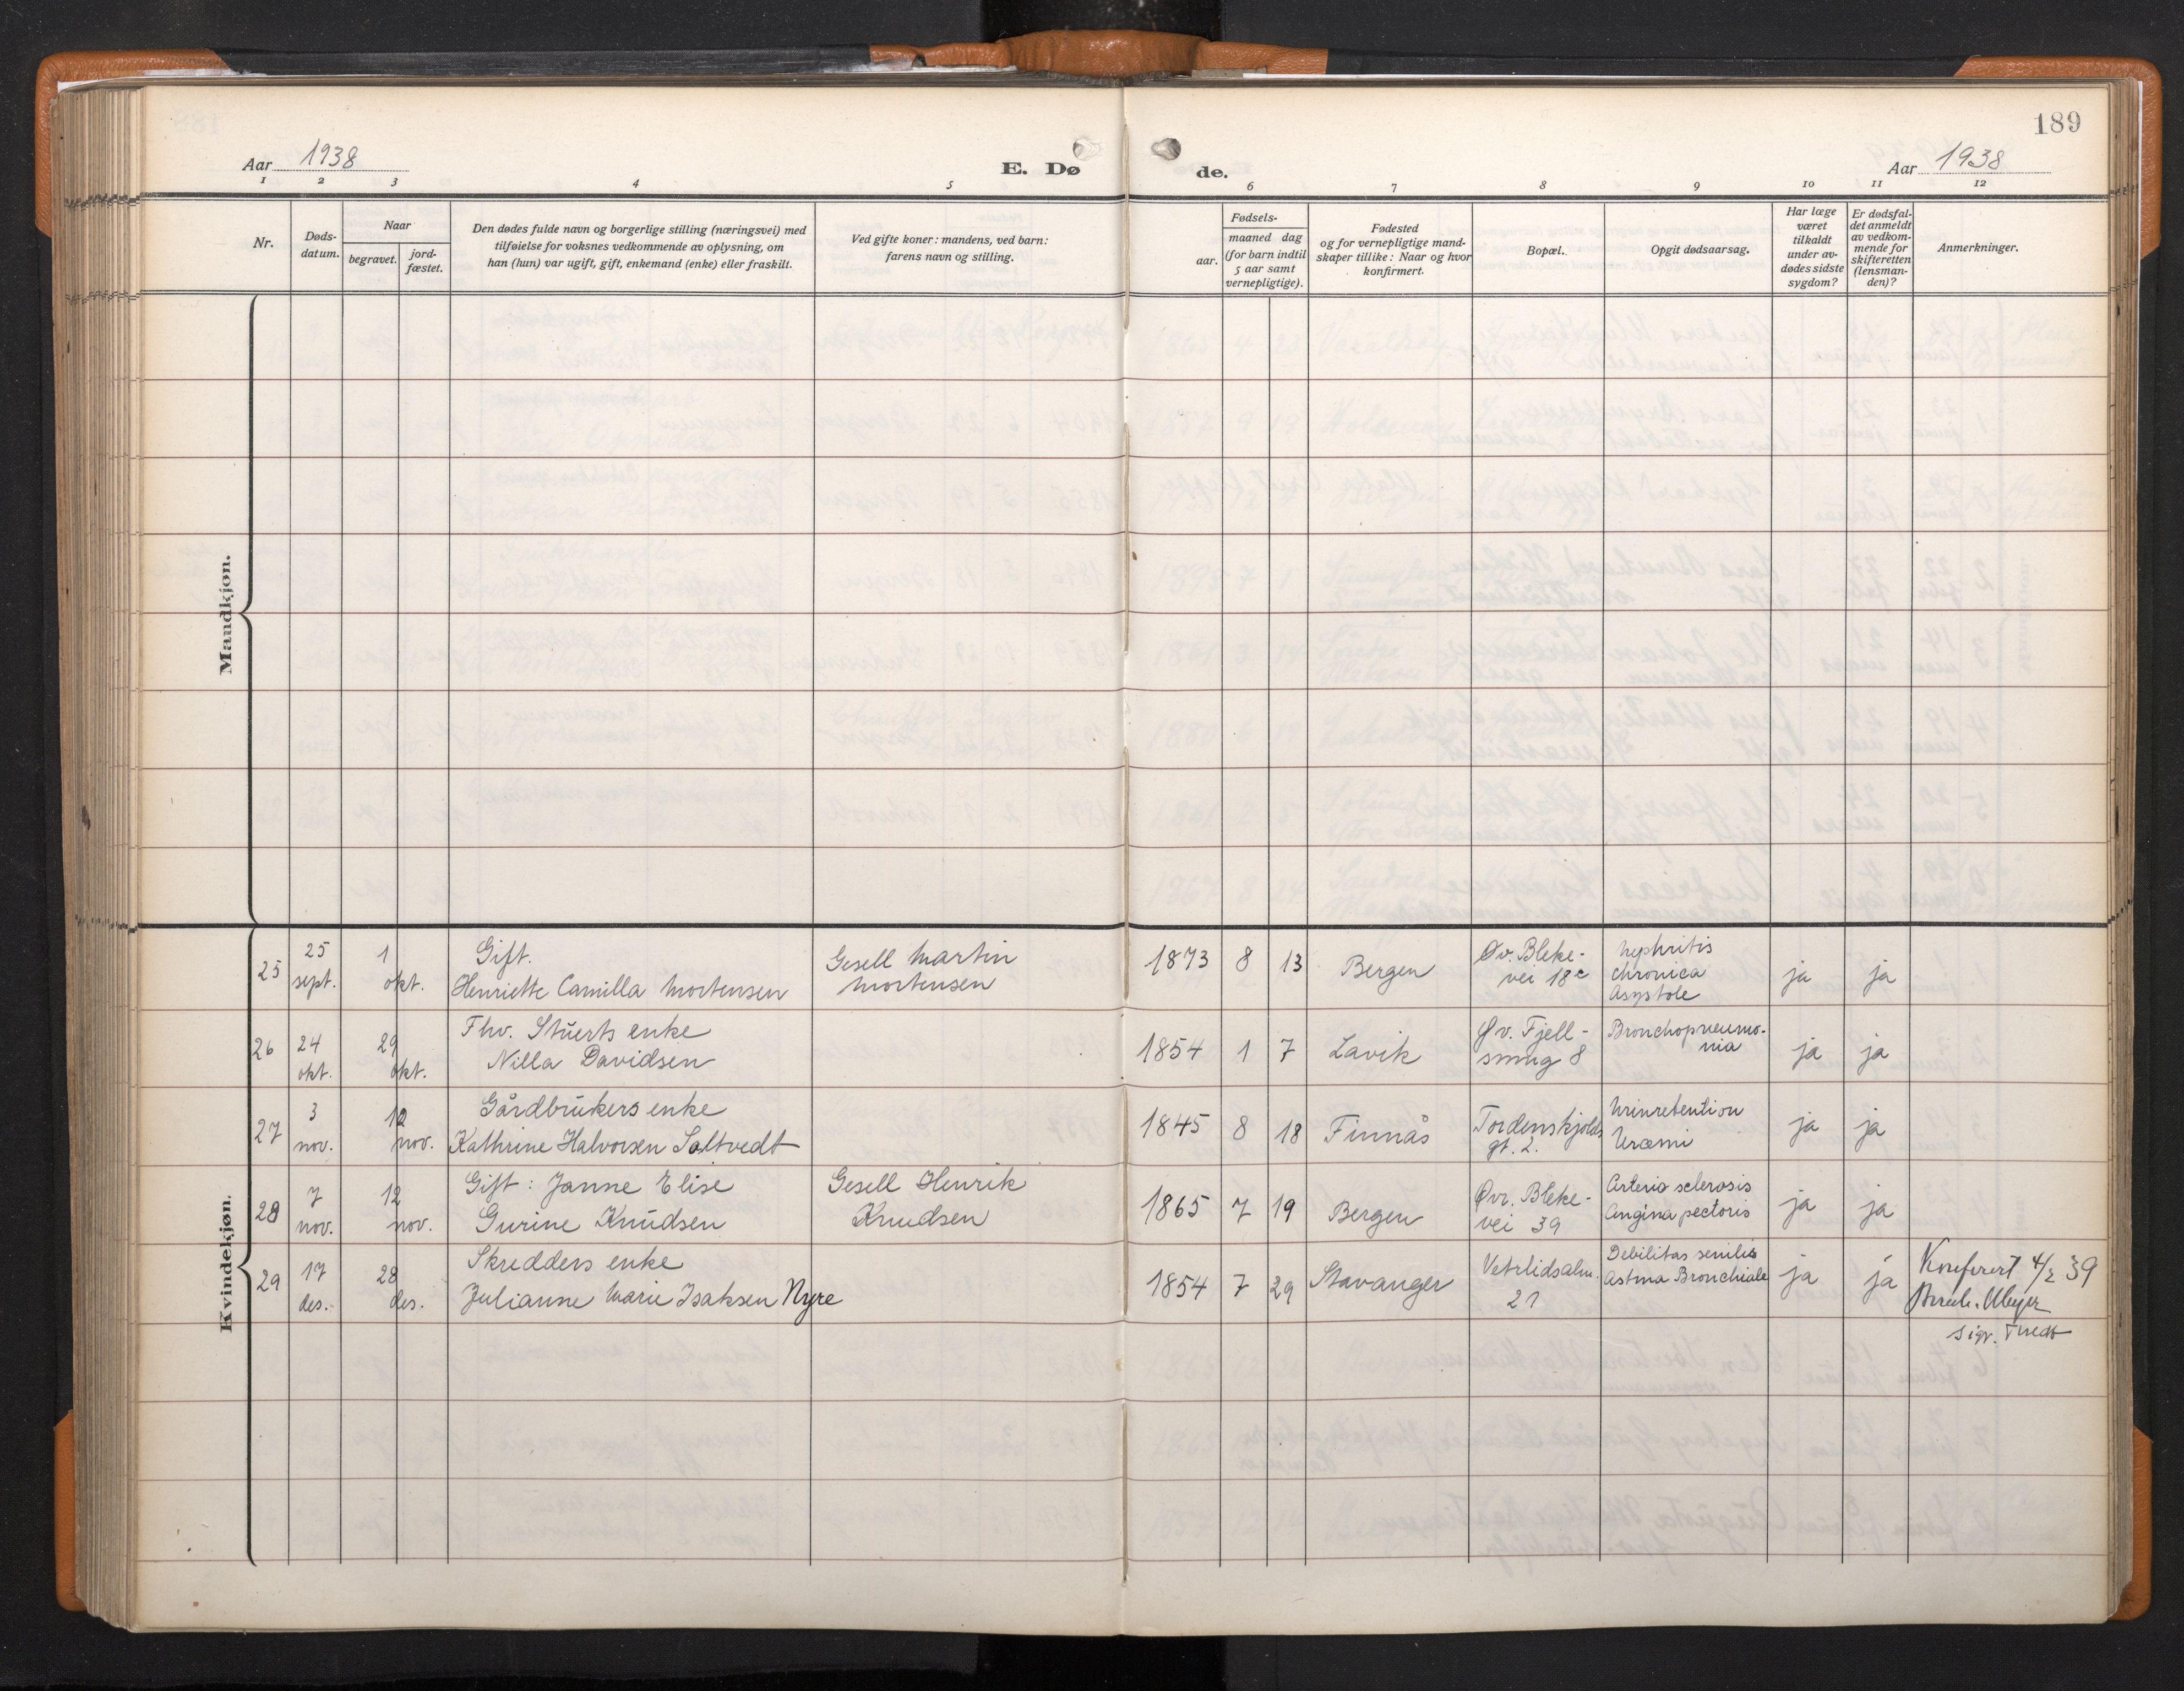 189
Aar 1938
E. Dø
de.
Aar 1938
1 2 3 4 5 6 7 8 9 10 11 12
Nr.
Døds-
datum.
Naar
begravet.
jord-
fæstet.
Den dødes fulde navn og borgerlige stilling (næringsvei) med
tilføielse for voksnes vedkommende av oplysning, om
han (hun) var ugift, gift, enkemand (enke) eller fraskilt.
Ved gifte koner: mandens, ved barn:
farens navn og stilling.
Fødsels-
aar.
maaned dag
(for barn indtil
5 aar samt
vernepligtige).
Fødested
og for vernepligtige mand-
skaper tillike: Naar og hvor
konfirmert.
Bopæl.
Opgit dødsaarsag.
Har læge
været
tilkaldt
under av-
dødes sidste
sygdom?
Er dødsfal-
det anmeldt
av vedkom-
mende for
skifteretten
(lensman-
den)?
Anmerkninger.
Mandkjøn.
Kvindekjøn.
25
25
sept.
1
okt.
Gift.
Henriette Camilla Mortensen
Gesell Martin
Mortensen
1873 8 13
Bergen
Øv. Bleke-
vei 18c
Nephritis
chronica
Asystole
ja ja
26
24
okt.
29
okt.
Fhv. Stuerts enke
Nilla Davidsen
1854 1 7
Lavik
Øv. Fjell-
smug 8
Bronchopneumo-
nia
ja ja
27
3
nov.
12
nov.
Gårdbrukers enke
Kathrine Halvorsen Saltvedt
1845 8 18
Finnås
Tordenskjolds
gt. 2.
Urinretention
Uræmi
ja ja
28
7
nov.
12
nov.
Gift: Janne Elise
Gurine Knudsen
Gesell Henrik
Knudsen
1865 7 19
Bergen
Øvr. Bleke-
vei 39
Arterio sclerosis
Angina pectoris
ja ja
29
17
des.
28
des.
Skredders enke
Julianne Marie Isaksen Nyre
1854 7 29
Stavanger
Vetrlidsalm.
21
Debilitas senilis
Astma Bronchiale
ja ja
Konferert 4/2 39
sign. Tvedt